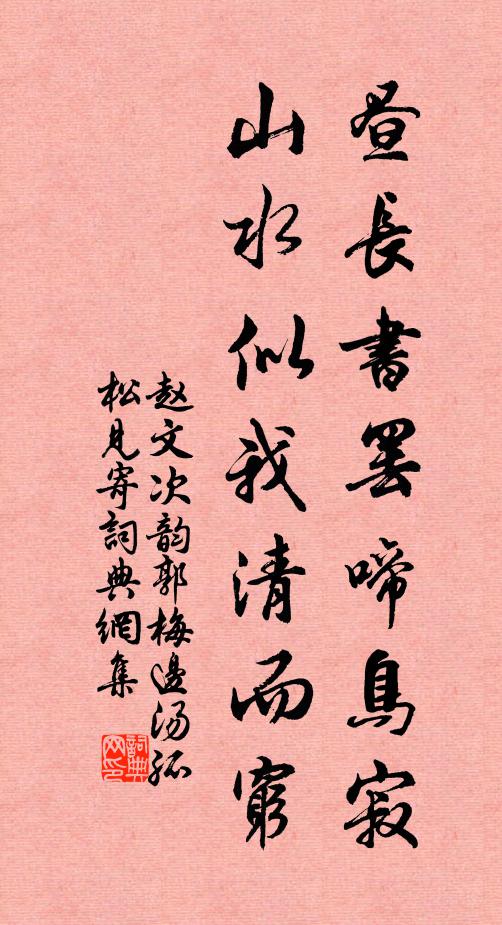 昼長書罢啼鳥寂
山水似我清而窮
赵文次韵郭梅邊汤孤
松見寄詞典網集
詞典
网印